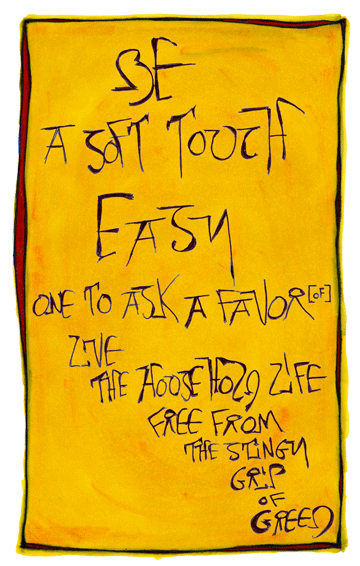 BE
A SOFT TOUCH
EASY
ONE TO ASK A FAVOR [OF]
LIVE
THE HOUSEHOLD LIFE
FREE FROM
THE STINGY
GRIP
OF
GREED